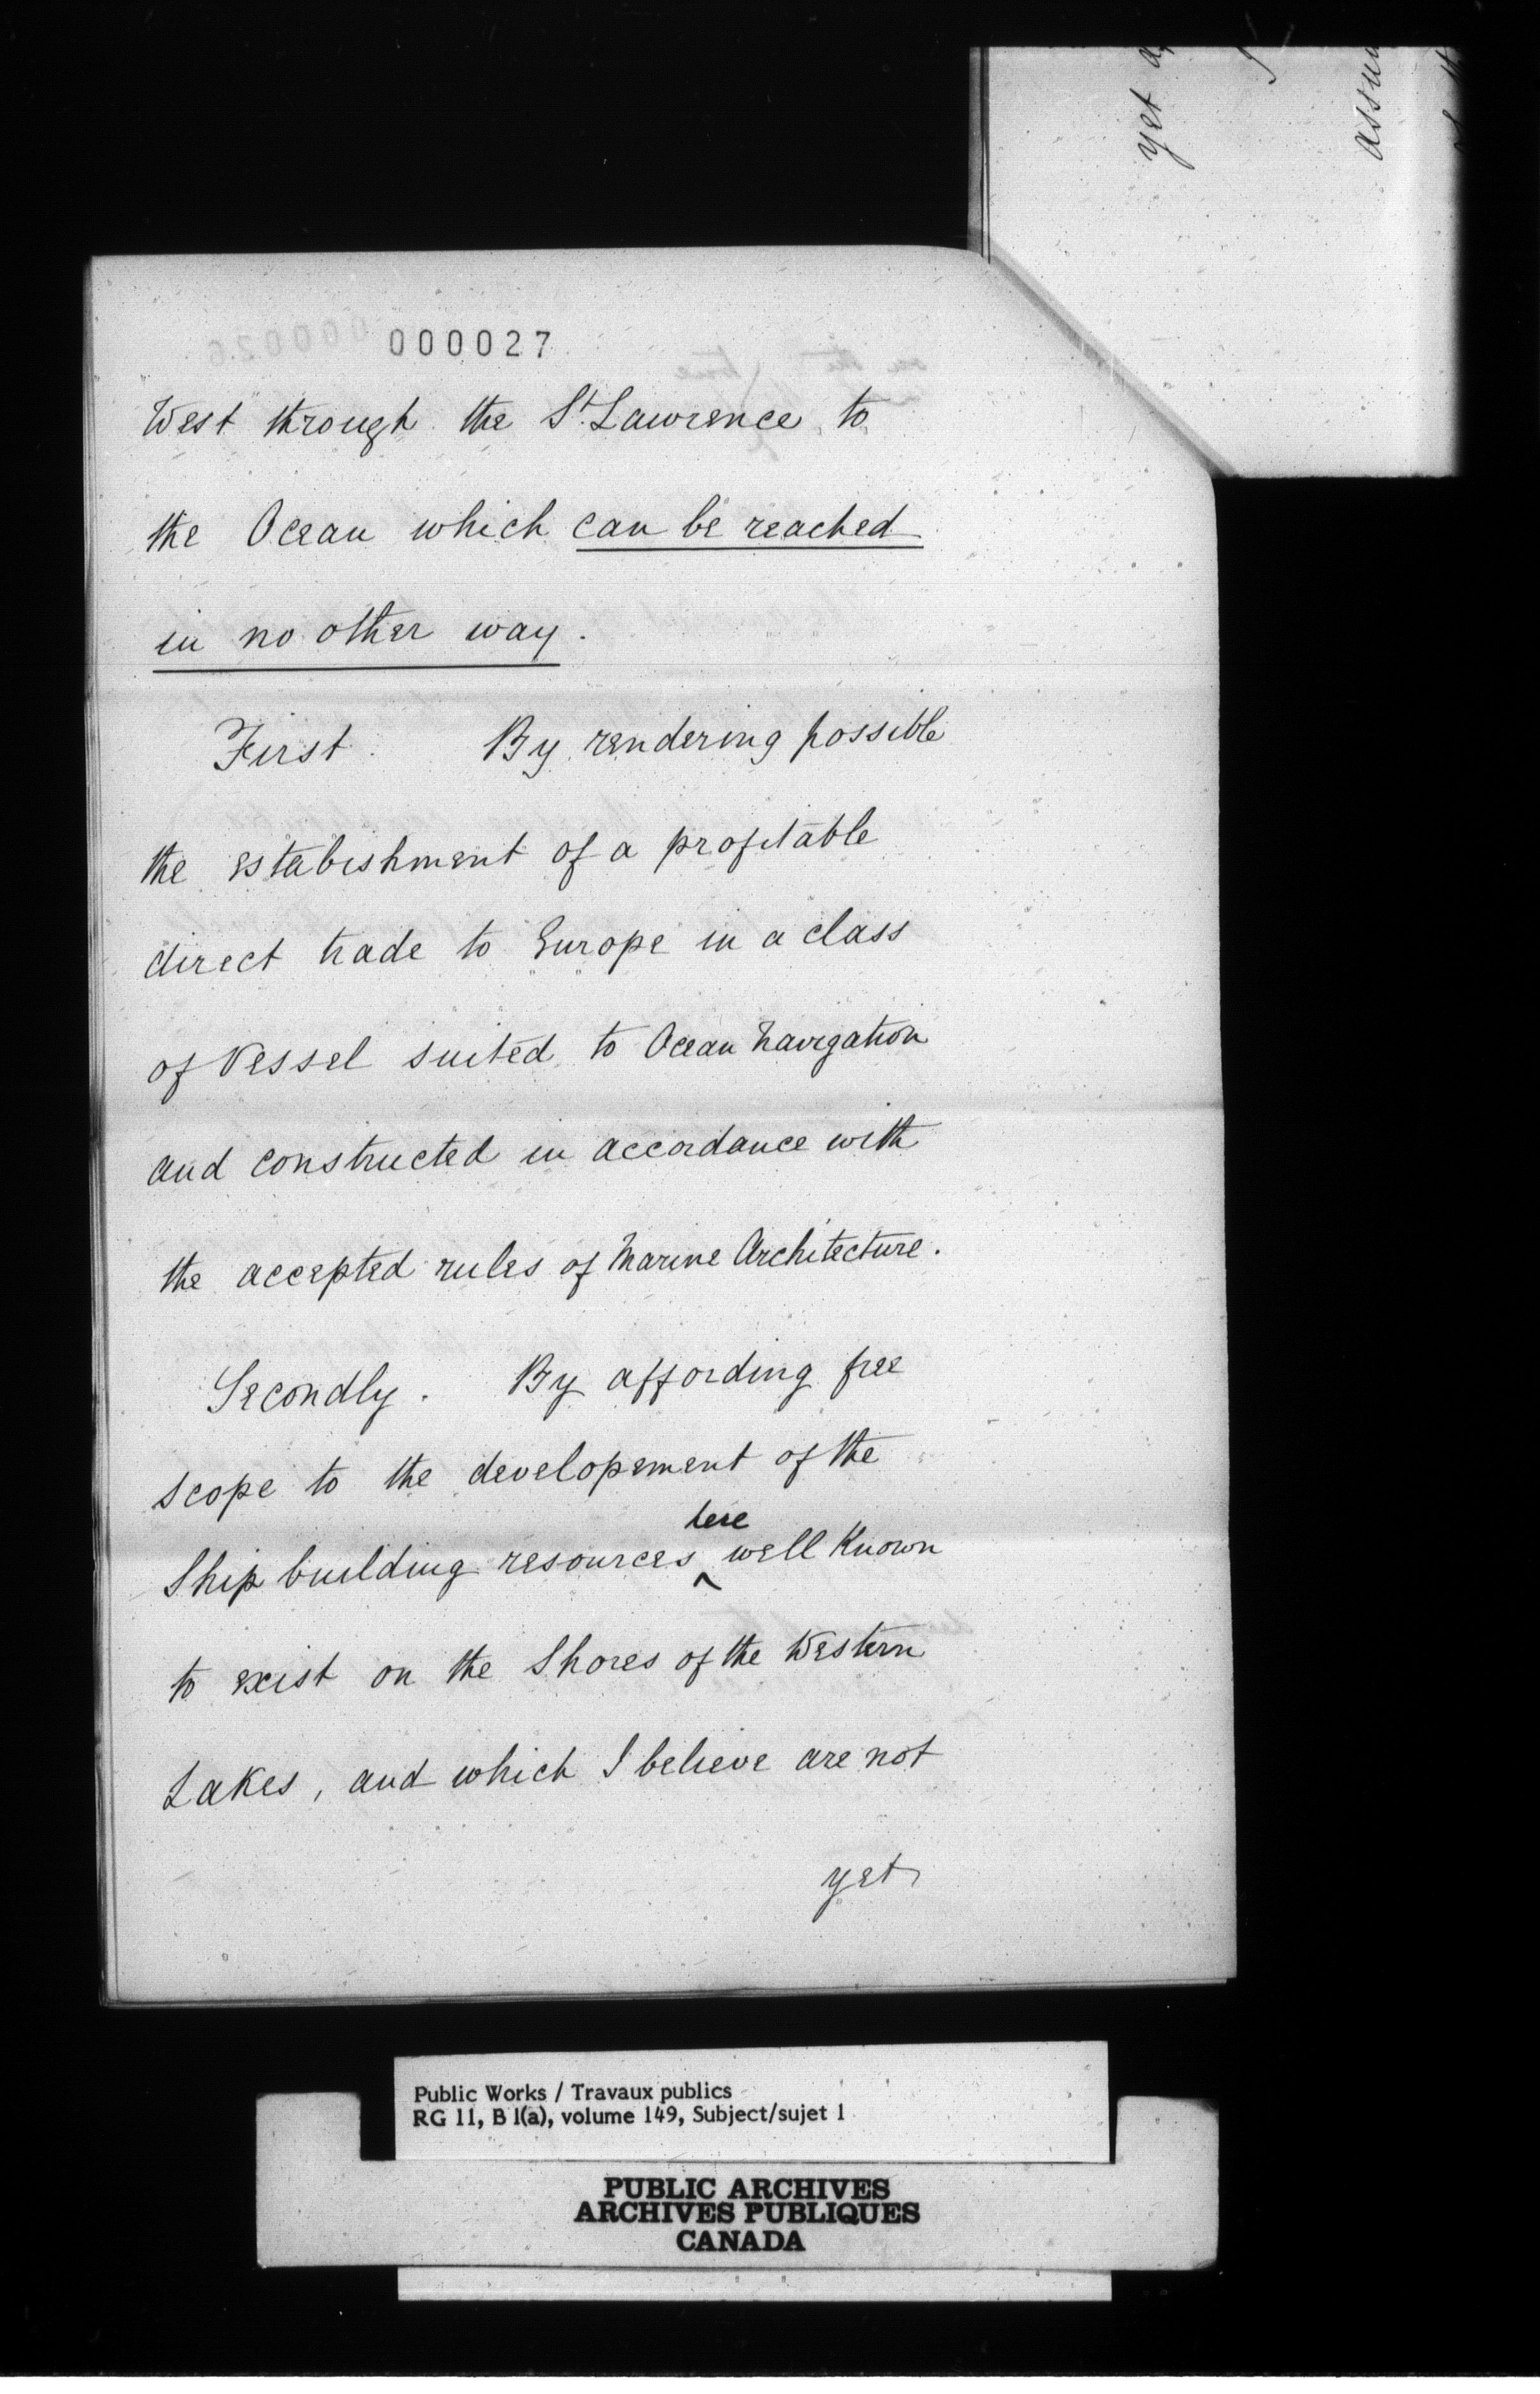 yet
assum
000027
West through the St. Lawrence to
the Ocean which can be reached
in no other way.
First. By rendering possible
the estabishment of a profitable
direct trade to Europe in a class
of Vessel suited to Ocean Navigation
and constructed in accordance with
the accepted rules of Marine Architecture.
Secondly. By affording free
scope to the developement of the
here
Ship building resources ‸ well Known
to exist on the Shores of the Western
Lakes, and which I believe are not
yet
Public Works / Travaux publics
RG 11, B 1(a), volume 149, Subject/sujet 1
PUBLIC ARCHIVES
ARCHIVES PUBLIQUES
CANADA